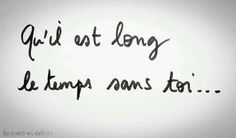 Qu'il est long
le temps sans toi...